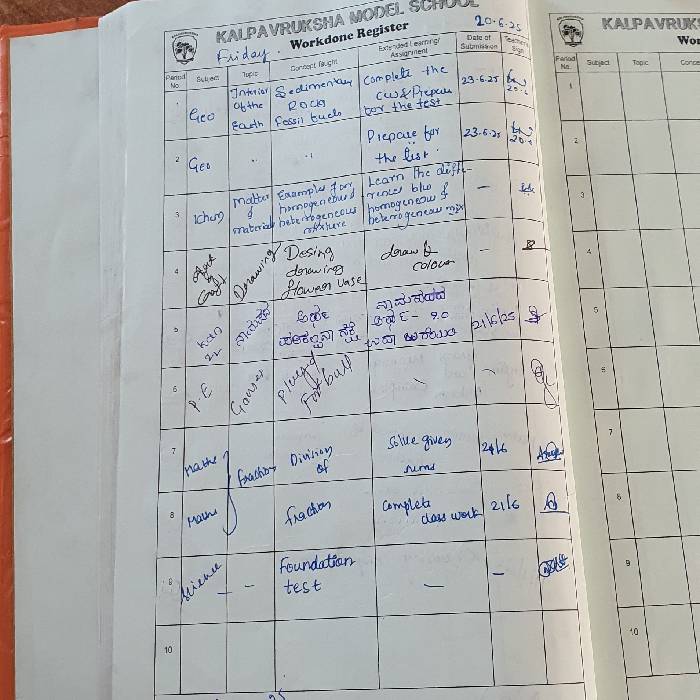 KALPAVRUKSHA MODEL SCHOOL
20.6.25
Friday.
Workdone Register
Period No. Subject Topic Concept Taught Extended Learning/ Assignment Date of Submission Teacher's Sign
1 Geo Interior of the Earth Sedimentary Rocks Fossil fuels Complete the cw & Prepare for the test 23.6.25
2 Geo Prepare for the 23.6.25
3 Matter & materials Examples for homogeneous & heterogeneous mixture Learn the differences b/w homogeneous & heterogeneous mix –
4 Drawing Desing drawing flower vase draw & colour –
5 Kan 2L 21/6/25
6 P.E Games Played Football – –
7 Maths Fraction Division of Solve given sums
8 Maths fraction Complete class work 21/6
9 Science – – Foundation test – –
10
KALPAVRUKS
Wor
Period No. Subject Topic Conce
1
2
3
4
5
6
7
8
9
10